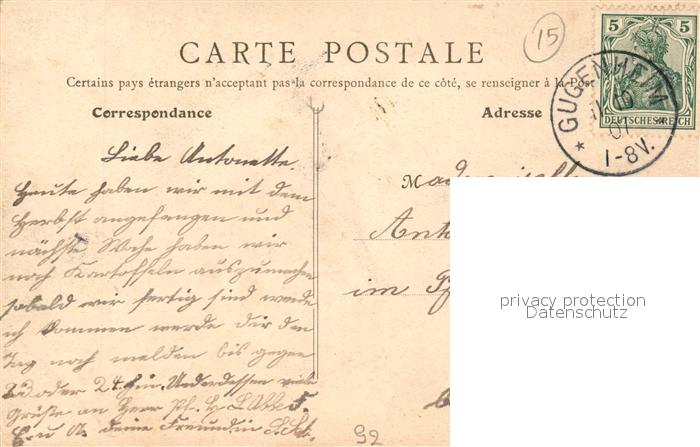 15
CARTE POSTALE
Certains pays étrangers n'acceptent pas la correspondance de ce côté, se renseigner à la Post
Correspondance
Adresse
5 5
DEUTSCHES REICH
GUGENHEIM
07
1-8V.
Liebe Antonette.
Heute haben wir mit dem
Herbst angefangen und
nächste Woche haben wir
noch Kartoffeln auszumachen
sobald wir fertig sind werde
ich kommen werde dir den
Tag noch melden bis gegen
23 oder 24. hin. Unterdessen viele
Grüße an Herr
deine Freundin
Mademoiselle
im
privacy protection
Datenschutz
92